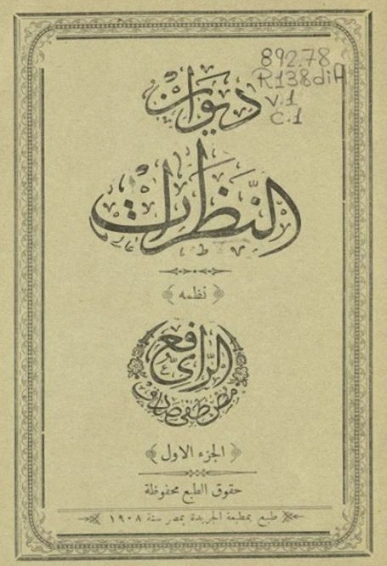 892.78
R138diA
v.1
c.1
ديوان
النَّظَرات
﴿ نظمه ﴾
الرافعي
مصطفى صادق
﴿ الجزء الاول ﴾
حقوق الطبع محفوظة
طبع بمطبعة الجريدة بمصر سنة ١٩٠٨